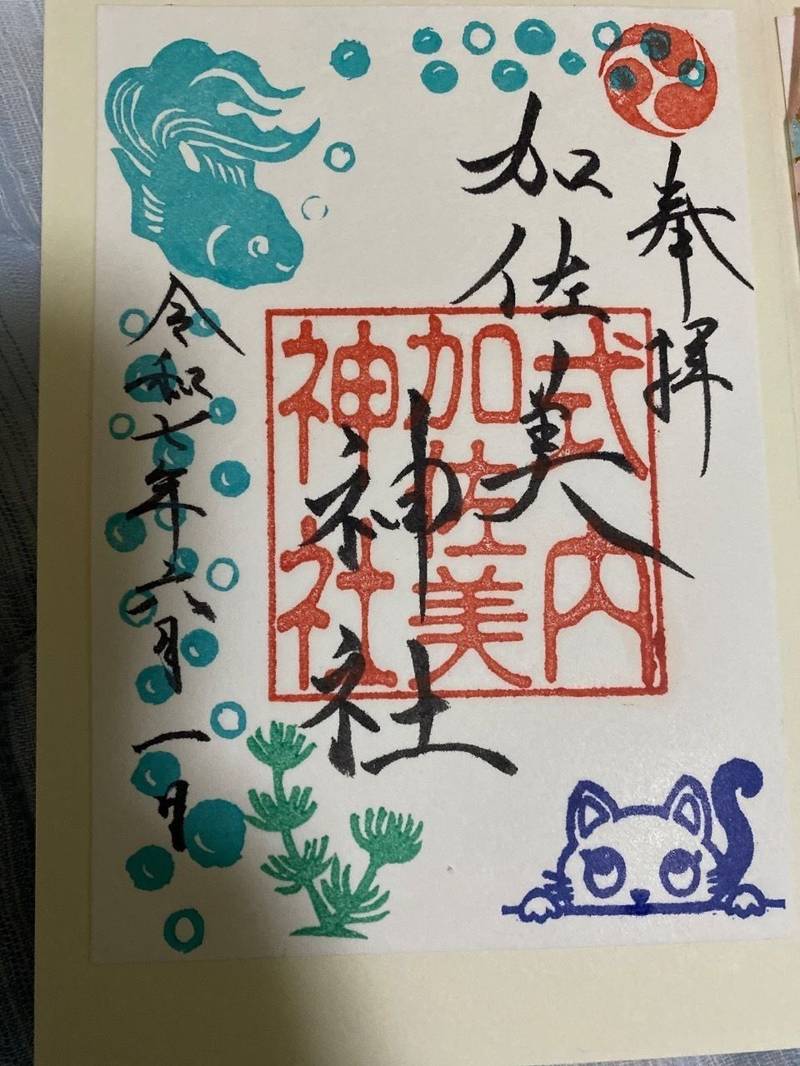 奉拝
加佐美
神社
式内
加佐美
神社
令和七年六月一日